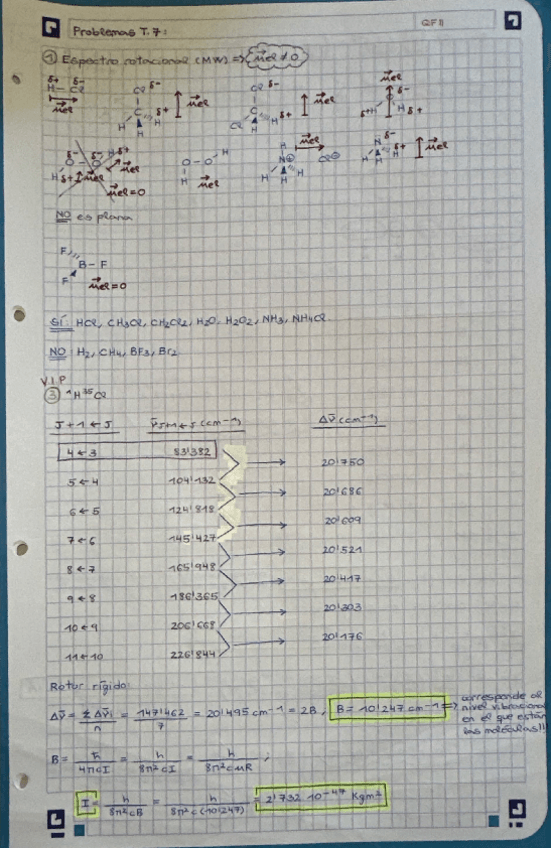 Problemas T.7:
QFII
① Espectro rotacional (MW) => μel ≠ 0
δ+ δ-
H-Cl
μel
Cl δ-
C δ+
H H H
μel
Cl δ-
C δ+
Cl H H
μel
μel
O δ-
δ+H H δ+
δ- δ- H δ+
O-O
H δ+ μel
μel=0
O-O H
H μel
H
N⊕
H H H
μel
Cl⊖
N δ-
H H H δ+
μel
NO es plana
F
B-F
F
μel=0
SÍ: HCl, CH3Cl, CH2Cl2, H2O, H2O2, NH3, NH4Cl
NO: H2, CH4, BF3, Br2
V.I.P
③ ¹H³⁵Cl
J+1←J ν̄J+1←J (cm-1) Δν̄ (cm-1)
4←3 83'382
20'750
5←4 104'132
20'686
6←5 124'818
20'609
7←6 145'427
20'521
8←7 165'948
20'417
9←8 186'365
20'303
10←9 206'668
20'176
11←10 226'844
Rotor rígido:
Δν̄ = ΣΔν̄i / n = 147'462 / 7 = 20'495 cm-1 = 2B, B = 10'247 cm-1 => corresponde al
nivel vibracional
en el que están
las moléculas!!
B = ħ / 4πcI = h / 8π²cI = h / 8π²cμR ;
I = h / 8π²cB = h / 8π²c(10'247) = 2'732 10-47 Kgm²